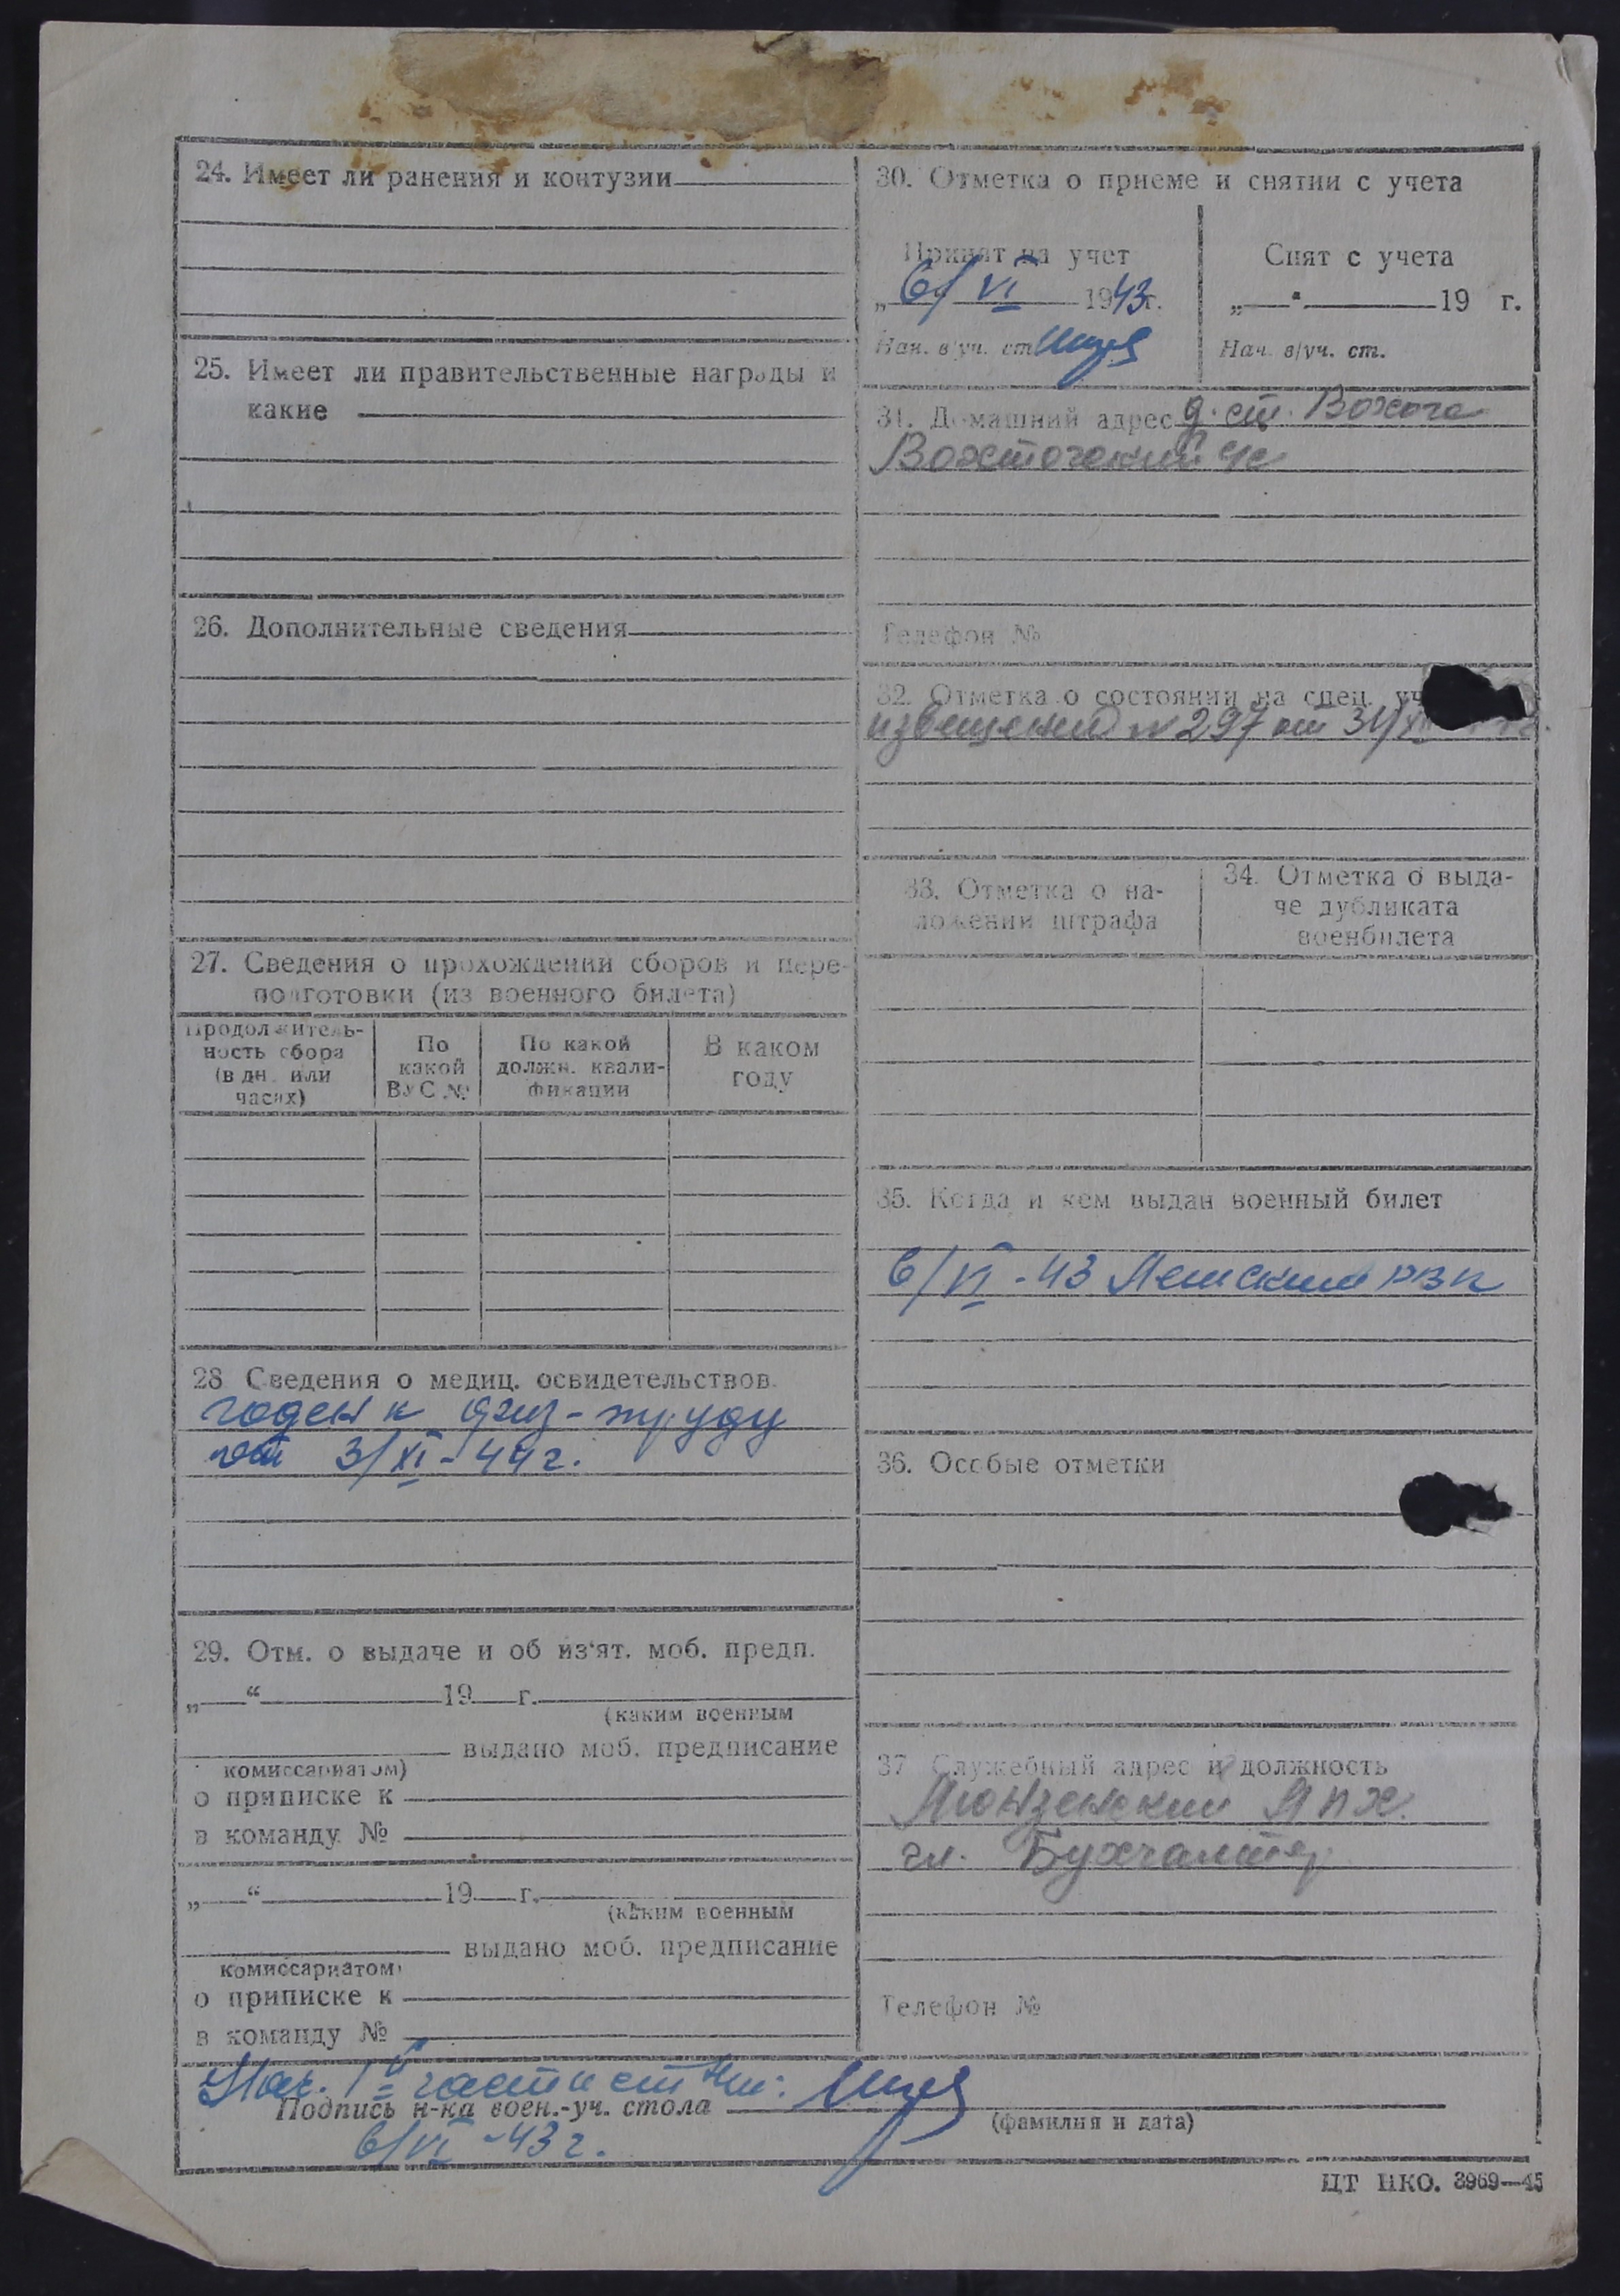 24. Имеет ли ранения и контузии
25. Имеет ли правительственные награды и
какие
26. Дополнительные сведения
27. Сведения о прохождении сборов и пере-
подготовки (из военного билета)
Продолжитель-
ность сбора
(в дн. или
часах)
По
какой
ВУС №
По какой
должн. квали-
фикации
В каком
году
28 Сведения о медиц. освидетельствов.
годен к физ-труду
от 3/XI-44г.
29. Отм. о выдаче и об из'ят. моб. предп.
„ “ 19 г.
(каким военным
выдано моб. предписание
комиссариатом)
о приписке к
в команду №
„ “ 19 г.
(каким военным
выдано моб. предписание
комиссариатом)
о приписке к
в команду №
30. Отметка о приеме и снятии с учета
Принят на учет
„6/VI 1943г.
Нач. в/уч. ст.
Снят с учета
„ “ 19 г.
Нач. в/уч. ст.
31. Домашний адрес д. ст. Вохтога
Телефон №
32. Отметка о состоянии на спец. уч
извещение №297 от 31/X
33. Отметка о на-
ложении штрафа
34. Отметка о выда-
че дубликата
военбилета
35. Когда и кем выдан военный билет
6/VI-43 РВК
36. Особые отметки
37 Служебный адрес и должность
Монзенский ЛПХ.
гл. Бухгалтер
Телефон №
Нач. 1й части ст.
Подпись н-ка воен.-уч. стола
(фамилия и дата)
6/VI-43 г.
ЦТ НКО. 3969—45